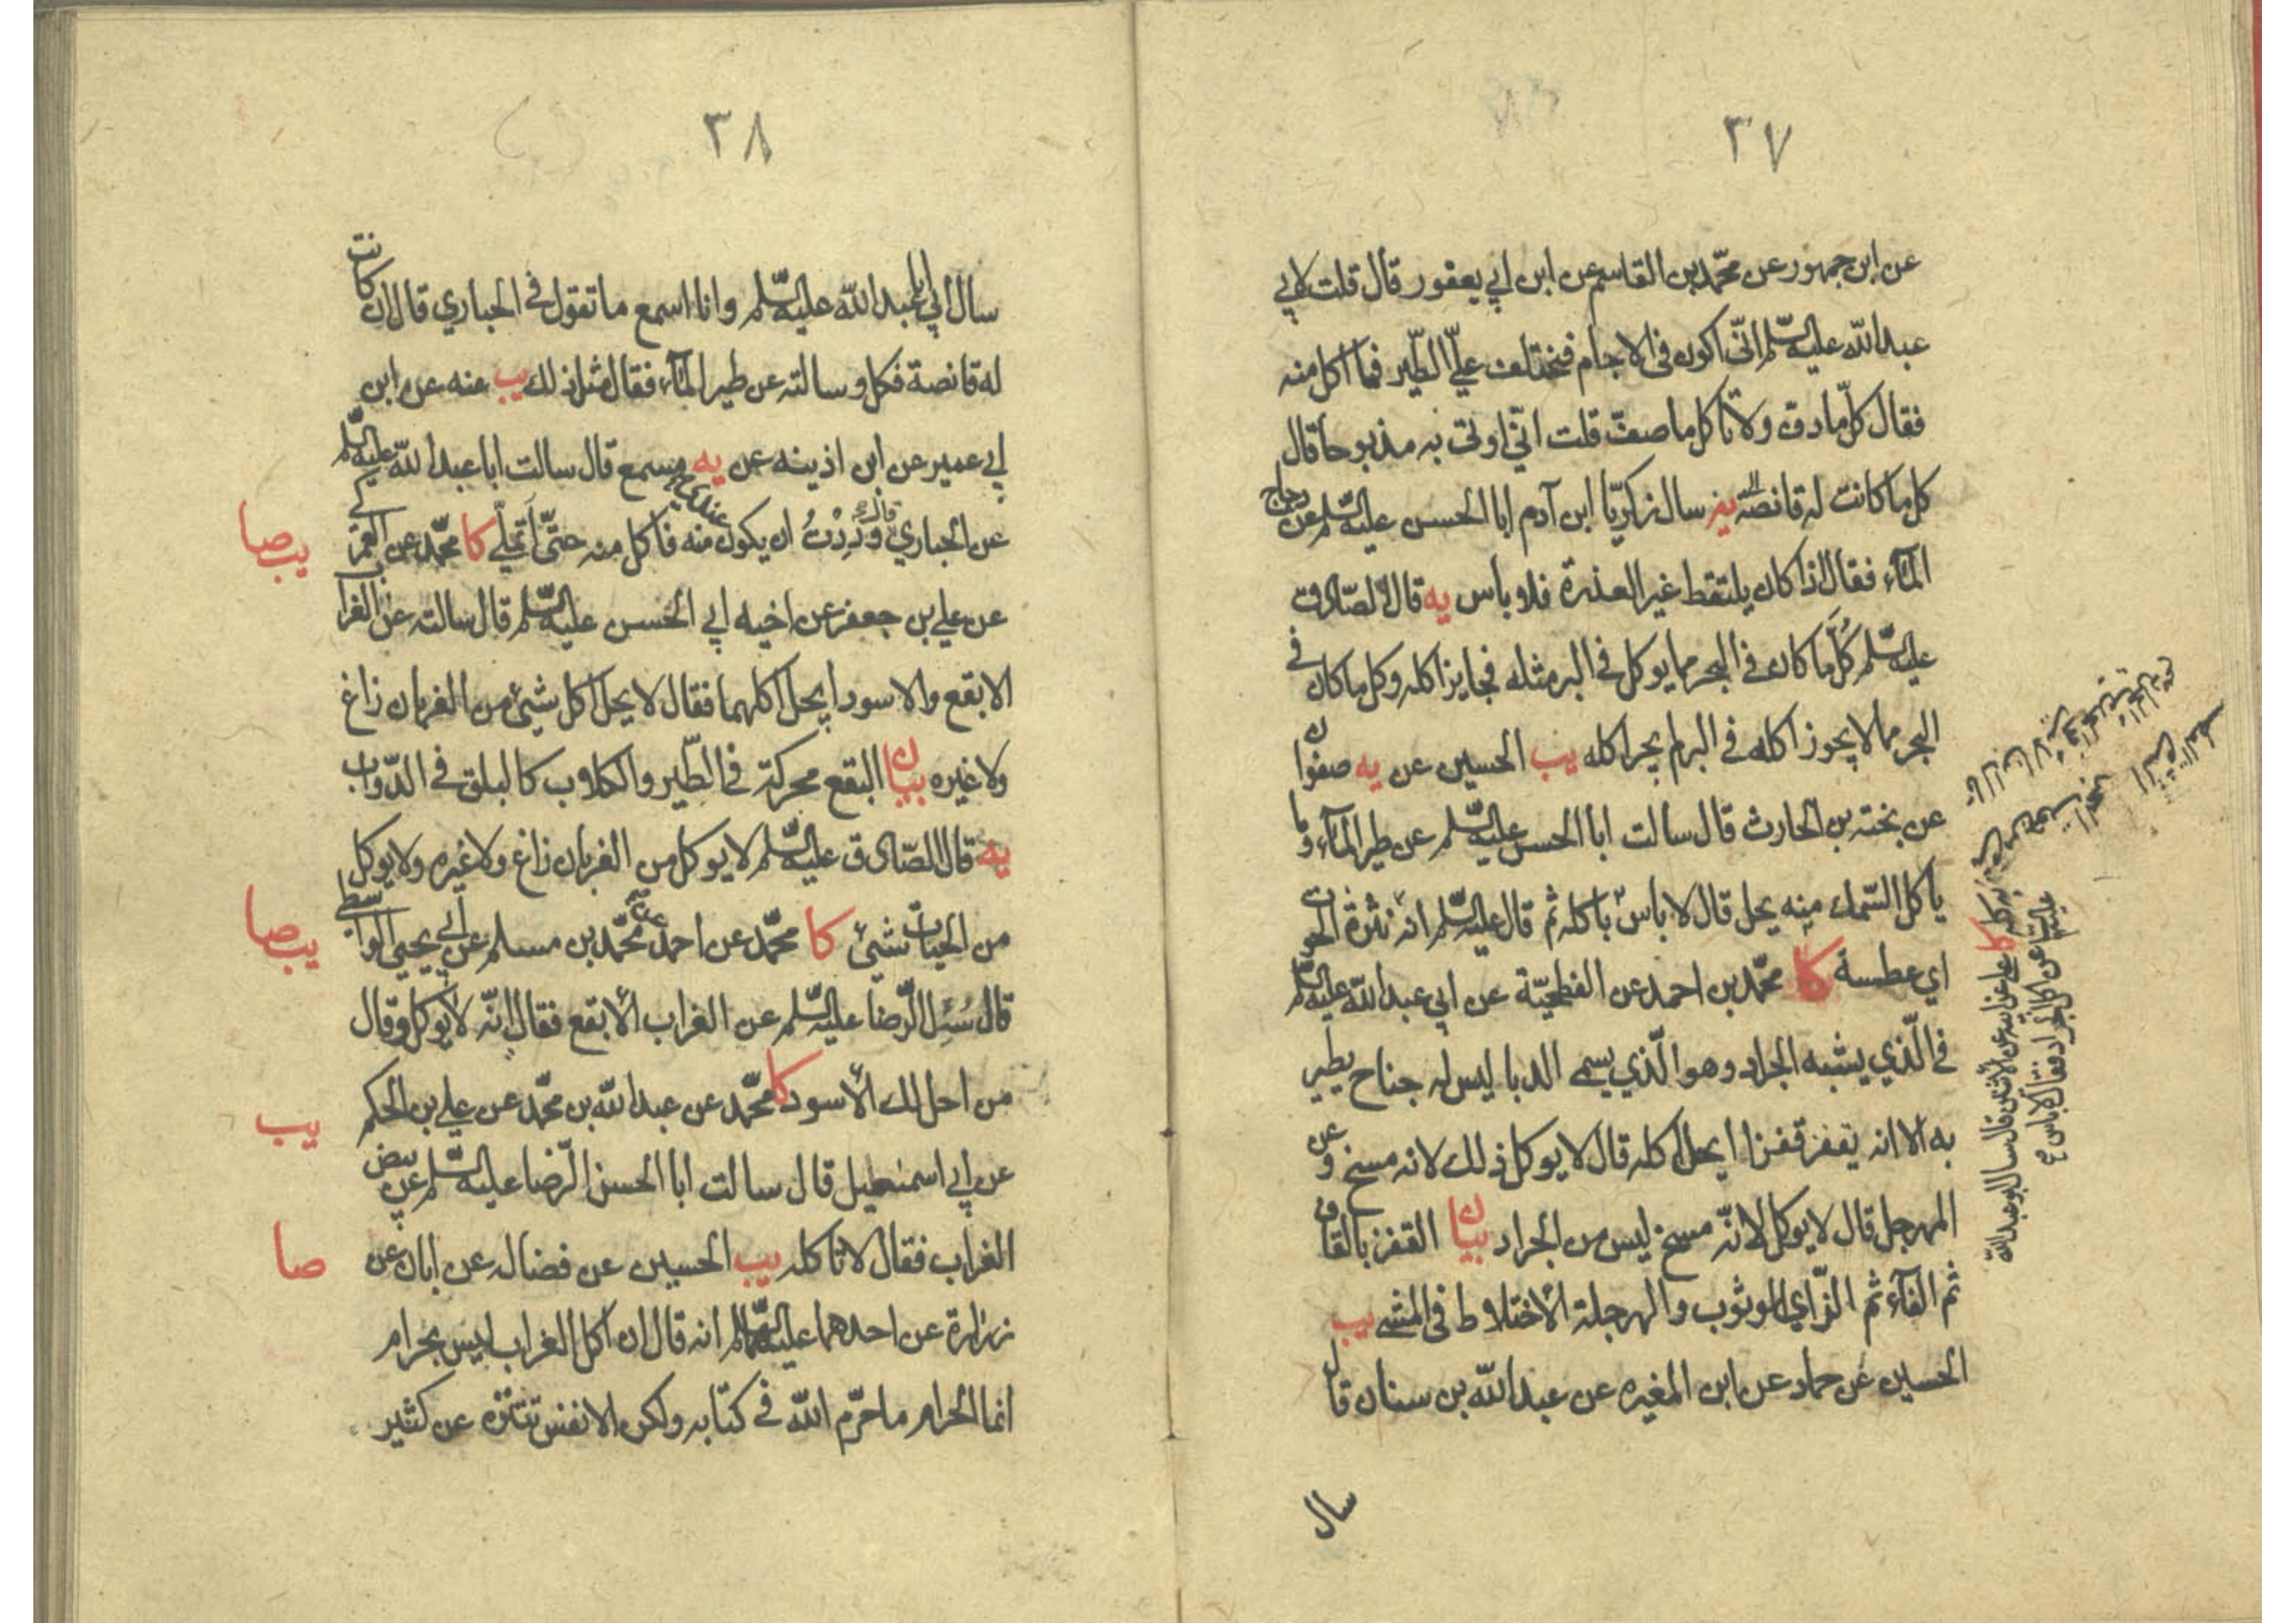 ٣٧
عن ابن جمهور عن محمّد بن القاسم عن ابن ابي يعفور قال قلت لابي
عبد الله عليه السّلم انّي اكون في الاجام فيختلف عليّ الطّير فما اكل منه
فقال كلّ ما دفّ ولا تاكل ما صفّ قلت انّي اوتى به مذبوحا قال
كل ما كانت له قانصة يه سال زكريّا ابن آدم ابا الحسن عليه السّلم عن دجاج
المآء فقال اذا كان يلتقط غير العذرة فلا باس يه قال الصّادق
عليه السّلم كُلّ ما كان في البحر مما يوكل في البر مثله فجايز اكله وكل ما كان في
البحر مما لا يجوز اكله في البر لم يجز اكله يب الحسين عن يه صفوان
عن بخته بن الحارث قال سالت ابا الحسن عليه السّلم عن طير المآء وما
ياكل السّمك منه يحل قال لا باس باكله ثم قال عليه السّلم انه نثرة الحوت
اي عطسة كا محمّد بن احمد عن الفطحيّة عن ابي عبد الله عليه السّلم
في الّذي يشبه الجراد وهو الّذي يسمى الدبا ليس له جناح يطير
به الا انه يقفز قفزا ايحل اكله قال لا يوكل ذلك لانه مسخ وعن
المهرجل قال لا يوكل لانّه مسخ ليس من الجراد بيان القفز بالقاف
ثم الفآء ثم الزّاي الوثوب والهرجلة الأختلاط في المشي يب
الحسين عن حماد عن ابن المغيره عن عبد الله بن سنان قال
سال
كا علي عن ابيه عن الأثنين قال سال ابو عبد الله
عليه السلم عن اكل الجراد فقال لا باس
٣٨
سال ابي ابا عبد الله عليه السّلم وانا اسمع ما تقول في الحباري قال ان كانت
له قانصة فكل وسالته عن طير المآء فقال مثل ذلك يب عنه عن ابن
ابي عمير عن ابن اذينه عن يه مسمع قال سالت ابا عبد الله عليه السّلم
عن الحباري قال وَدِدْتُ ان يكون عندي منه فاكل منه حتّى اَتملّي كا محمّد عن العمركي
يب صا
عن علي بن جعفر عن اخيه ابي الحسن عليه السّلم قال سالته عن الغراب
الابقع والاسود ايحل اكلهما فقال لا يحل اكل شيئ من الغربان زاغ
ولا غيره بيان البقع محركة في الطّير والكلاب كالبلق في الدّواب
يه قال الصّادق عليه السّلم لا يوكل من الغربان زاغ ولا غيره ولا يوكل
من الحيات شيئ كا محمّد عن احمد عن محمّد بن مسلم عن ابي يحيى الواسطي
يب صا
قال سُئِل الرّضا عليه السّلم عن الغراب الأبقع فقال انّه لا يوكل وقال
من احل لك الأسود كا محمّد عن عبد الله بن محمّد عن علي بن الحكم
يب
عن ابي اسمعيل قال سالت ابا الحسن الرّضا عليه السّلم عن بيض
الغراب فقال لا تاكله يب الحسين عن فضاله عن ابان عن
صا
زرارة عن احدهما عليهما السّلم انه قال ان اكل الغراب ليس بحرام
انما الحرام ما حرّم الله في كتابه ولكن الانفس تتنزه عن كثير